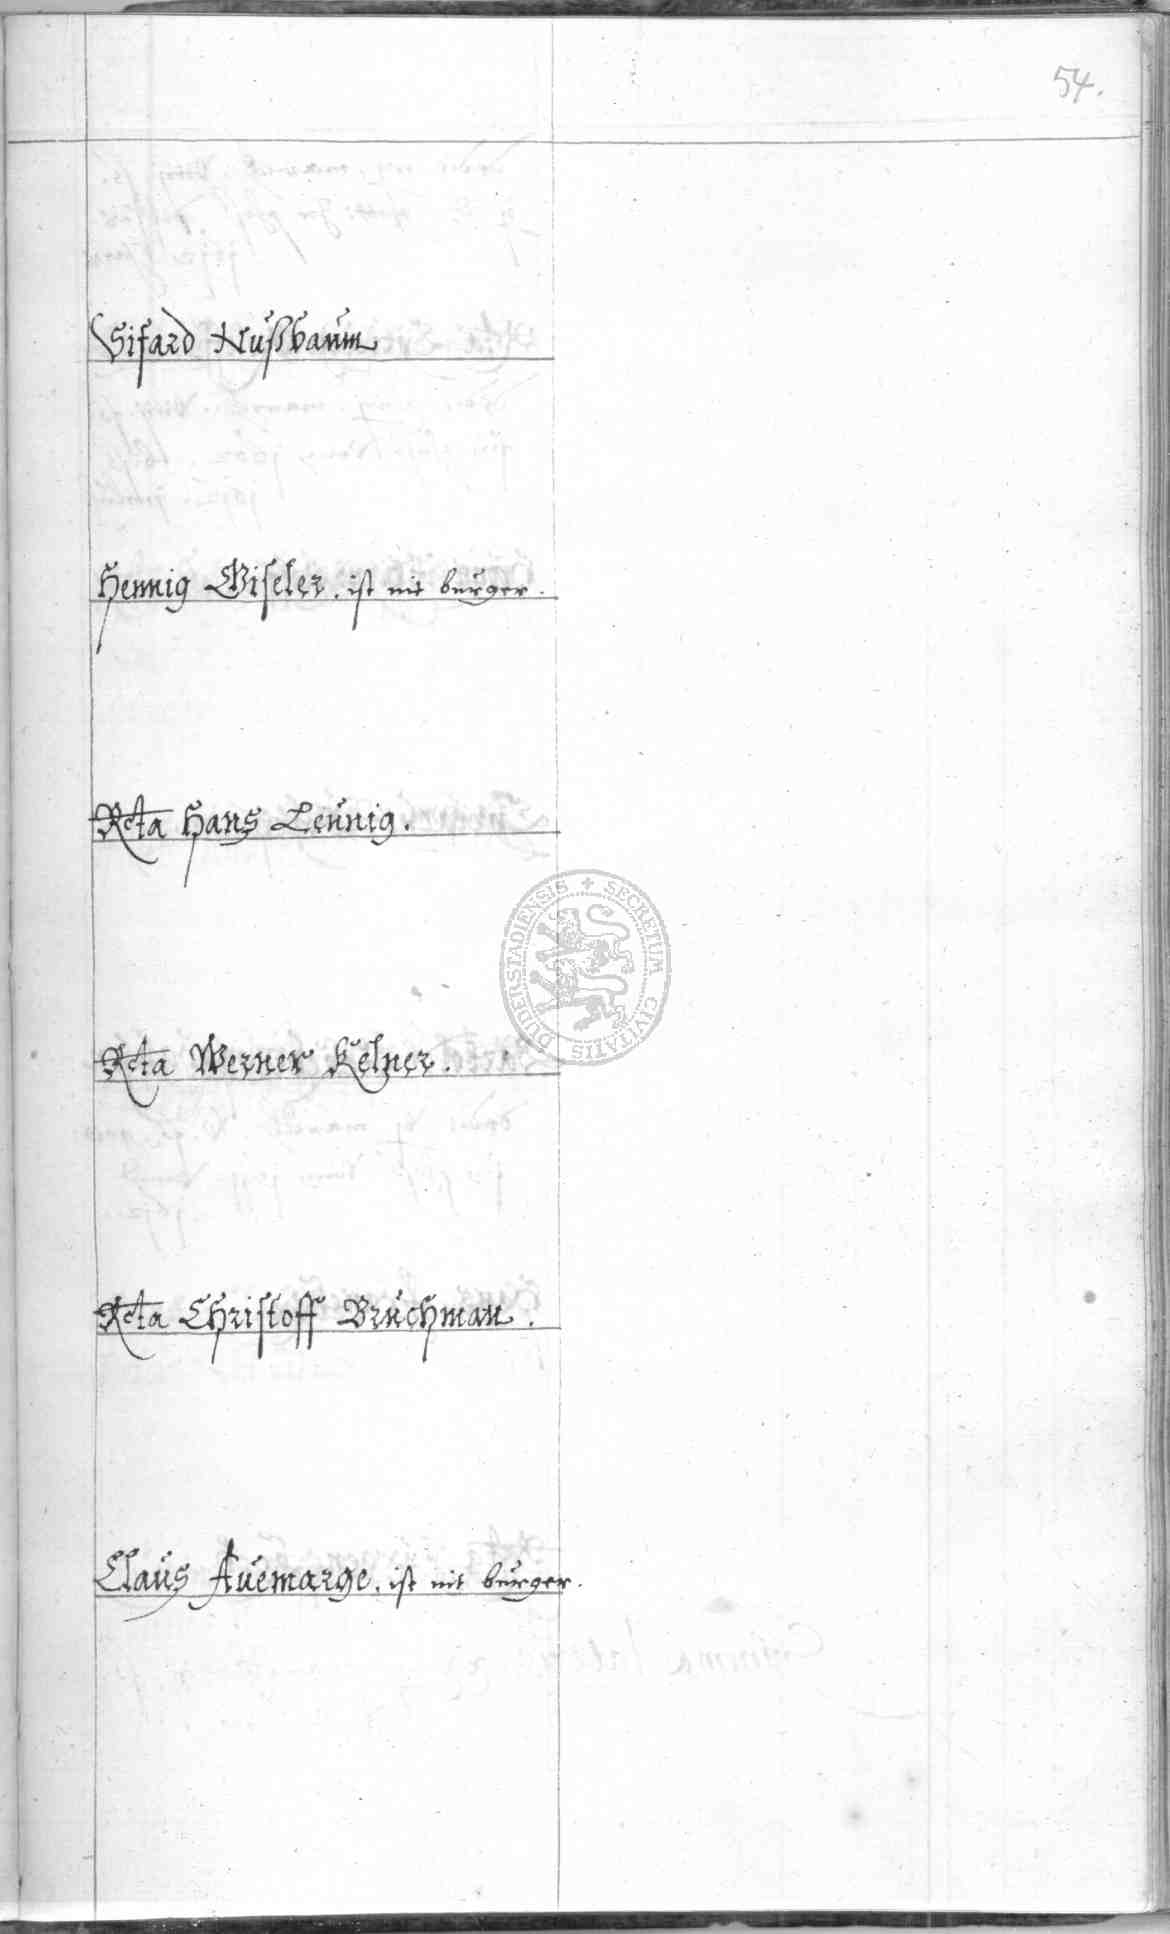 54.
Sifard Nußbaum
Hennig Giseler. ist nit burger.
Rcta Hans Leunig.
Rcta Werner Kelner.
DUDERSTADIENSIS + SECRETUM CIVITATIS
Rcta Christoff Bruchman.
Claus Auemarge. ist nit burger.